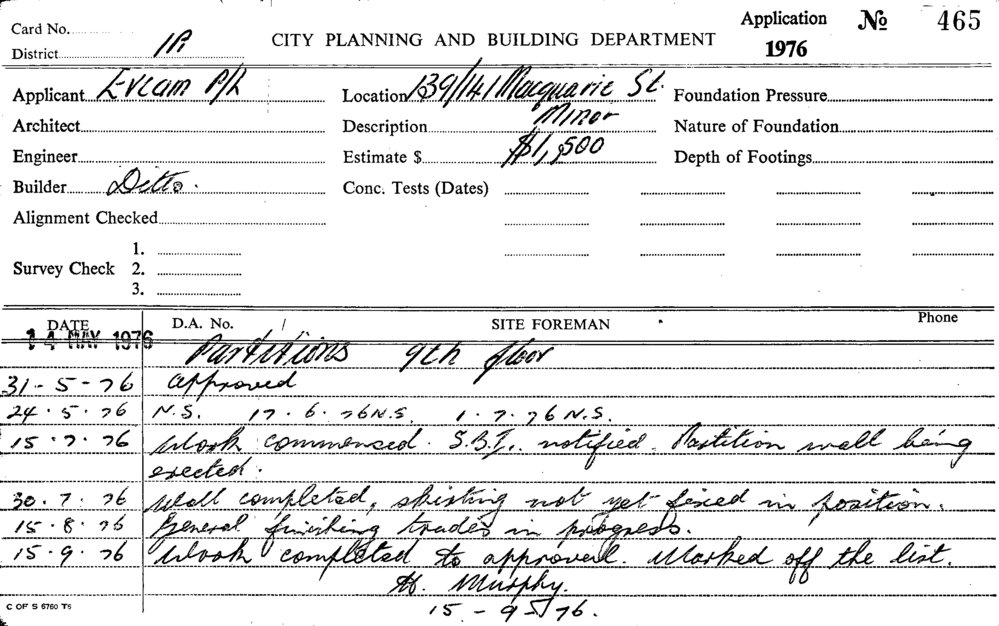 Card No. Application No 465
District 1A CITY PLANNING AND BUILDING DEPARTMENT 1976
Applicant Evcam P/L Location 139/141 Macquarie St. Foundation Pressure
Architect Description Minor Nature of Foundation
Engineer Estimate $ $1,500 Depth of Footings
Builder Ditto. Conc. Tests (Dates)
Alignment Checked
1.
Survey Check 2.
3.
DATE D.A. No. / SITE FOREMAN Phone
14 MAY 1976 Partitions 9th floor
31-5-76 approved
24.5.76 N.S. 17.6.76 N.S. 1.7.76 N.S.
15.7.76 Work commenced. S.B.I. notified. Partition wall being
erected.
30.7.76 Wall completed, skirting not yet fixed in position.
15.8.76 General finishing trades in progress.
15.9.76 Work completed to approval. Marked off the list.
H. Murphy.
15-9-76.
C OF S 6760 TS